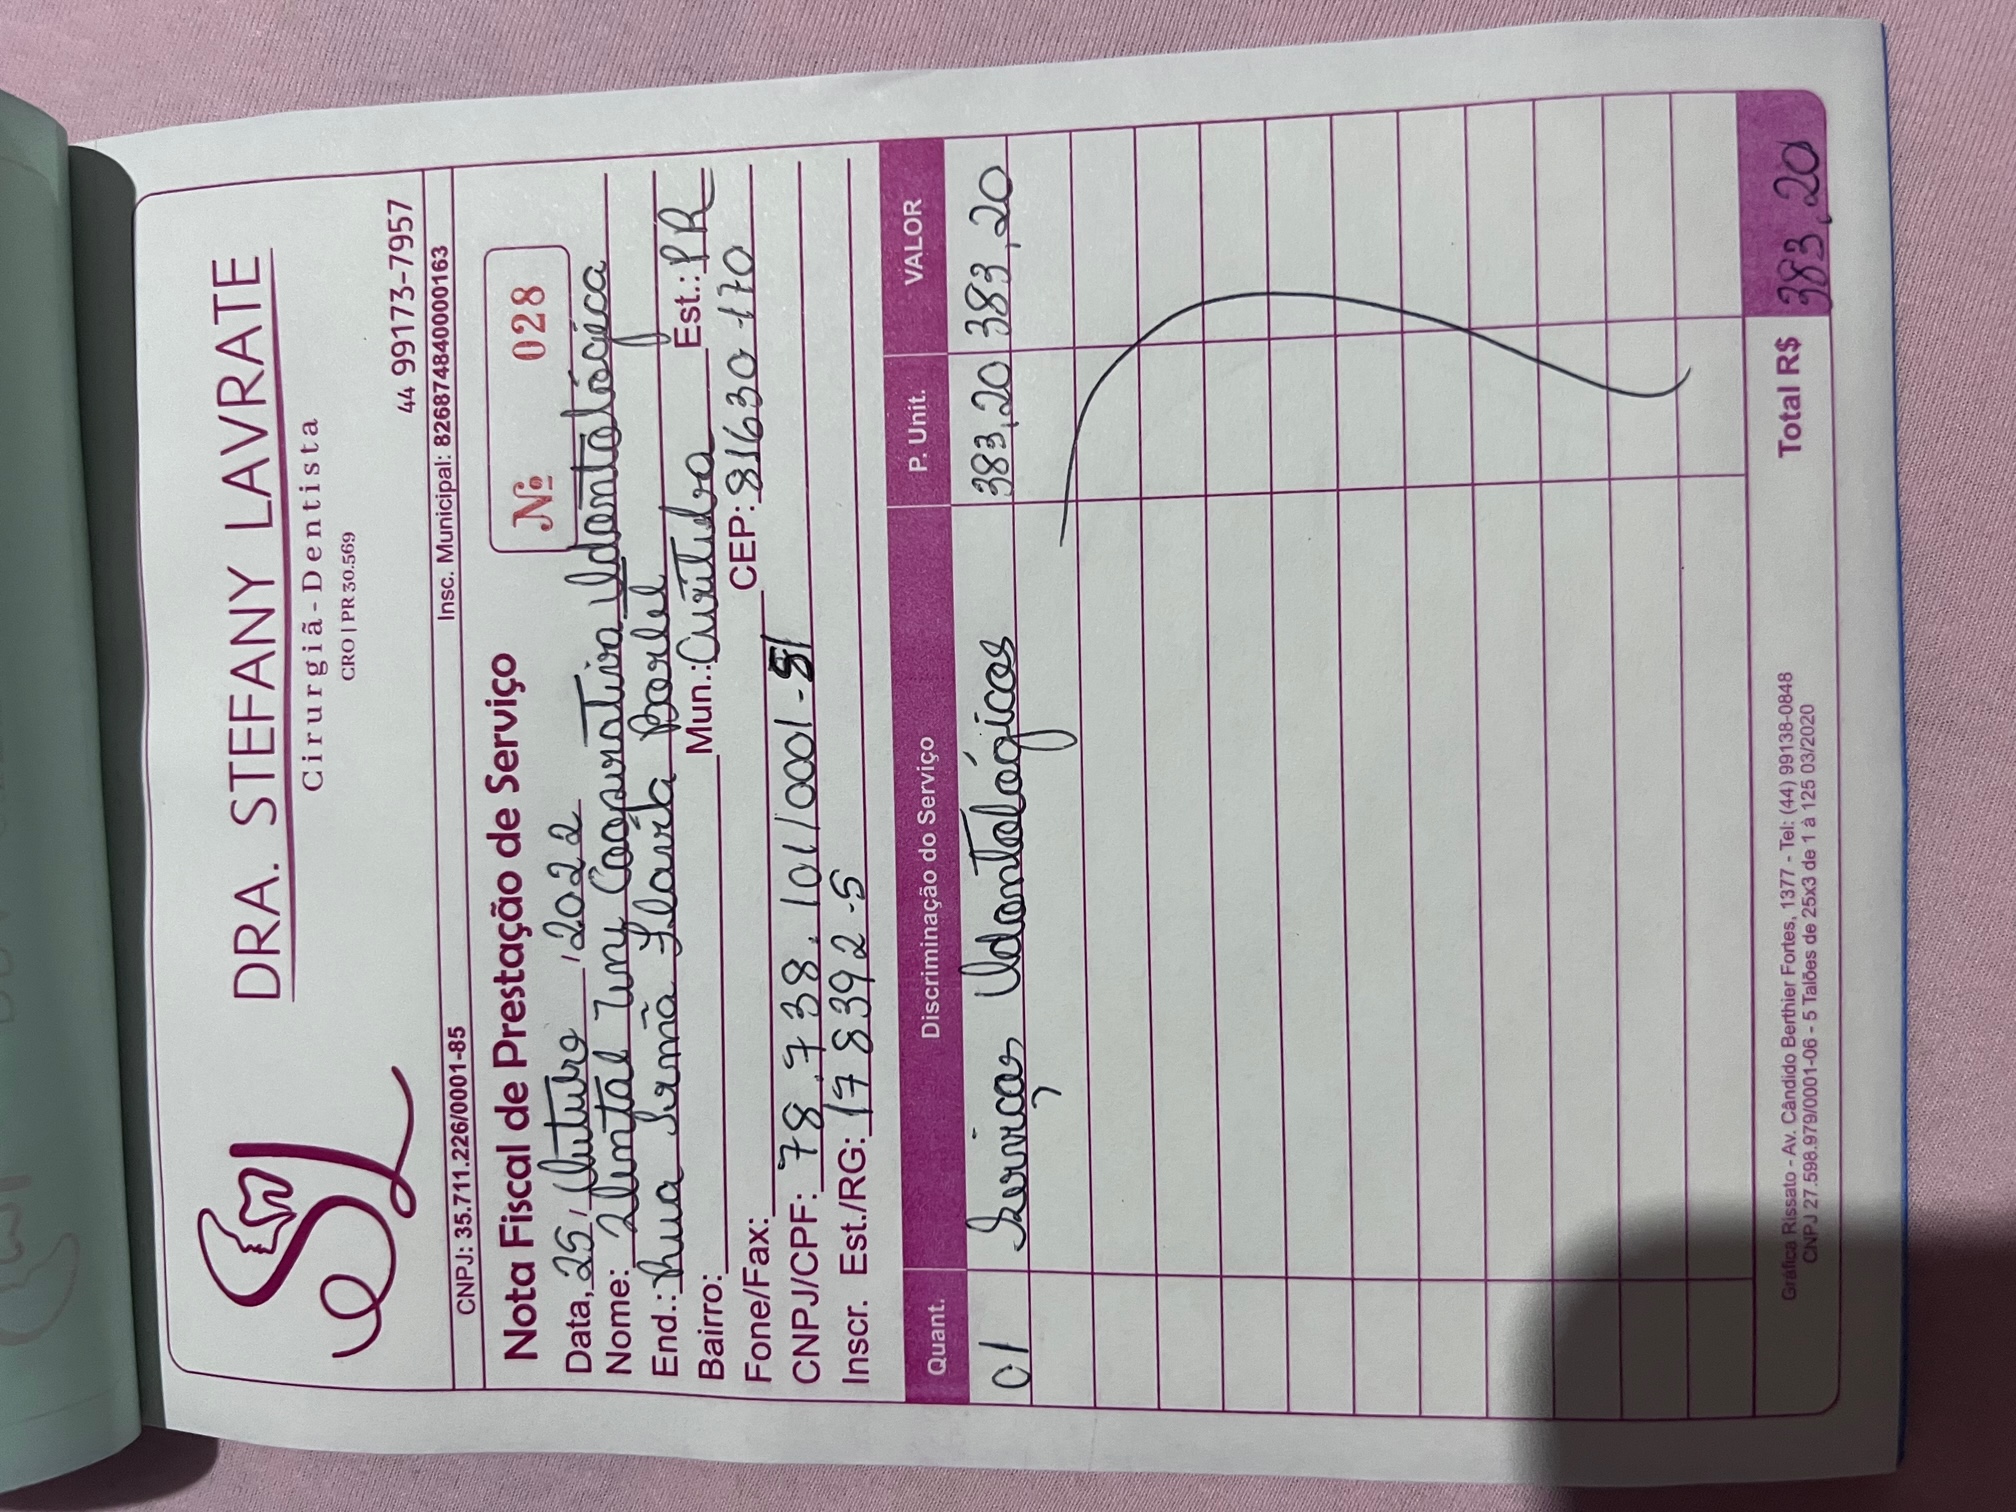 SL
DRA. STEFANY LAVRATE
Cirurgiã-Dentista
CRO | PR 30.569
44 99173-7957
CNPJ: 35.711.226/0001-85 Insc. Municipal: 8268748400000163
Nota Fiscal de Prestação de Serviço
Nº 028
Data, 25, Outubro, 2022
Nome: Dental Uni Cooperativa Odontológica
End.: Rua Irmã Flavia Borlet
Bairro: Mun.: Curitiba Est.: PR
Fone/Fax: CEP: 81630-170
CNPJ/CPF: 78.738.101/0001-51
Inscr. Est./RG: 178392-5
Quant. Discriminação do Serviço P. Unit. VALOR
01 Serviços Odontológicos 383,20 383,20
Gráfica Rissato - Av. Cândido Berthier Fortes, 1377 - Tel: (44) 99138-0848
CNPJ 27.598.979/0001-06 - 5 Talões de 25x3 de 1 à 125 03/2020
Total R$ 383,20